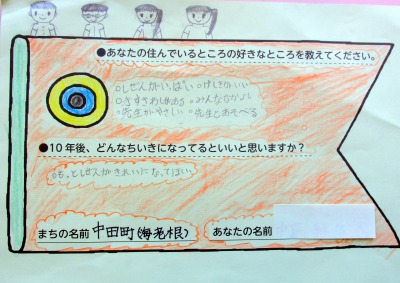 ●あなたの住んでいるところの好きなところを教えてください。
○しぜんがいっぱい ○けしきがいい
○みんななかよし
○先生がやさしい ○先生とあそべる
●10年後、どんなちいきになってるといいと思いますか？
○もっとしぜんがきれいになってほしい
まちの名前 中田町(海老根) あなたの名前